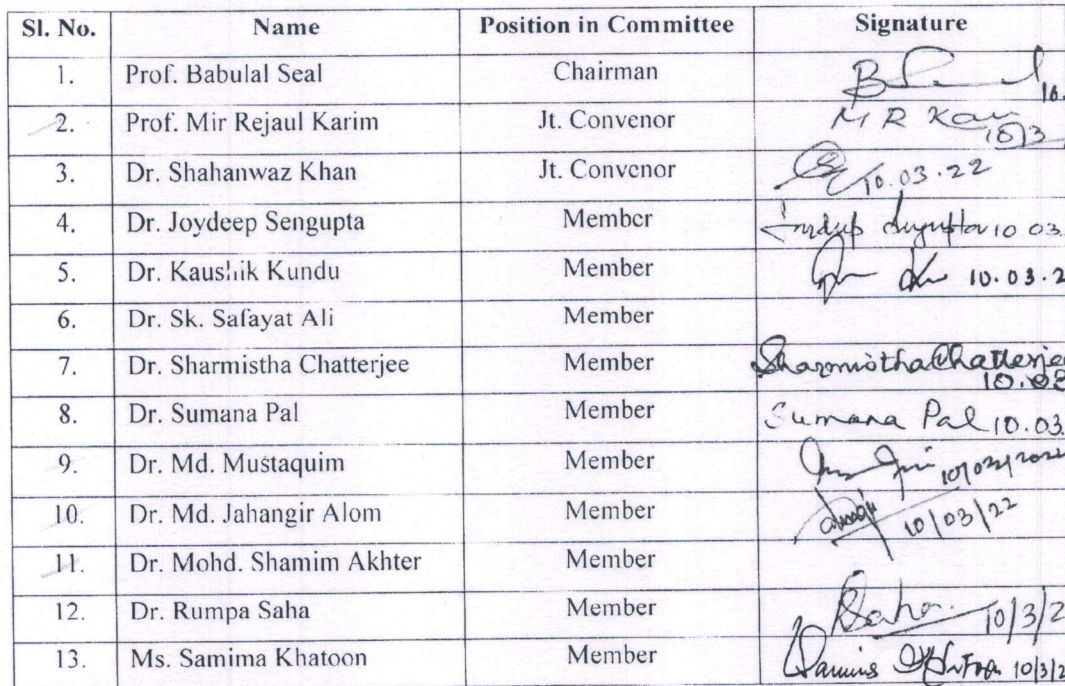 Sl. No. Name Position in Committee Signature
1. Prof. Babulal Seal Chairman 10.
2. Prof. Mir Rejaul Karim Jt. Convenor M R Kar
10/3
3. Dr. Shahanwaz Khan Jt. Convenor 10.03.22
4. Dr. Joydeep Sengupta Member 10 03.
5. Dr. Kaushik Kundu Member 10.03.2
6. Dr. Sk. Safayat Ali Member
7. Dr. Sharmistha Chatterjee Member Sharmistha Chatterjee
10.03
8. Dr. Sumana Pal Member Sumana Pal 10.03
9. Dr. Md. Mustaquim Member 10/03/2022
10. Dr. Md. Jahangir Alom Member 10/03/22
11. Dr. Mohd. Shamim Akhter Member
12. Dr. Rumpa Saha Member Saha 10/3/2
13. Ms. Samima Khatoon Member 10/3/2